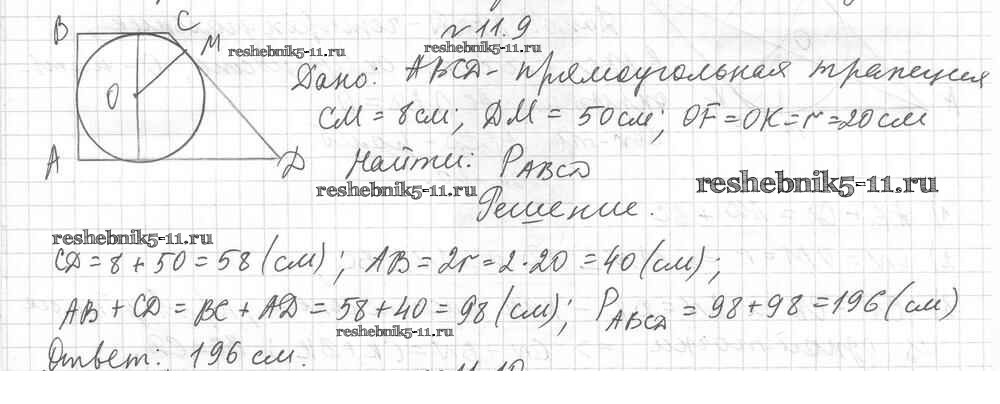 B C M
№ 11.9
reshebnik5-11.ru reshebnik5-11.ru
Дано: ABCD - прямоугольная трапеция
O
CM = 8 см; DM = 50 см; OF = OK = r = 20 см
A D Найти: P_ABCD
reshebnik5-11.ru reshebnik5-11.ru
Решение.
reshebnik5-11.ru
CD = 8 + 50 = 58 (см); AB = 2r = 2·20 = 40 (см);
AB + CD = BC + AD = 58 + 40 = 98 (см); P_ABCD = 98 + 98 = 196 (см)
reshebnik5-11.ru
Ответ: 196 см.